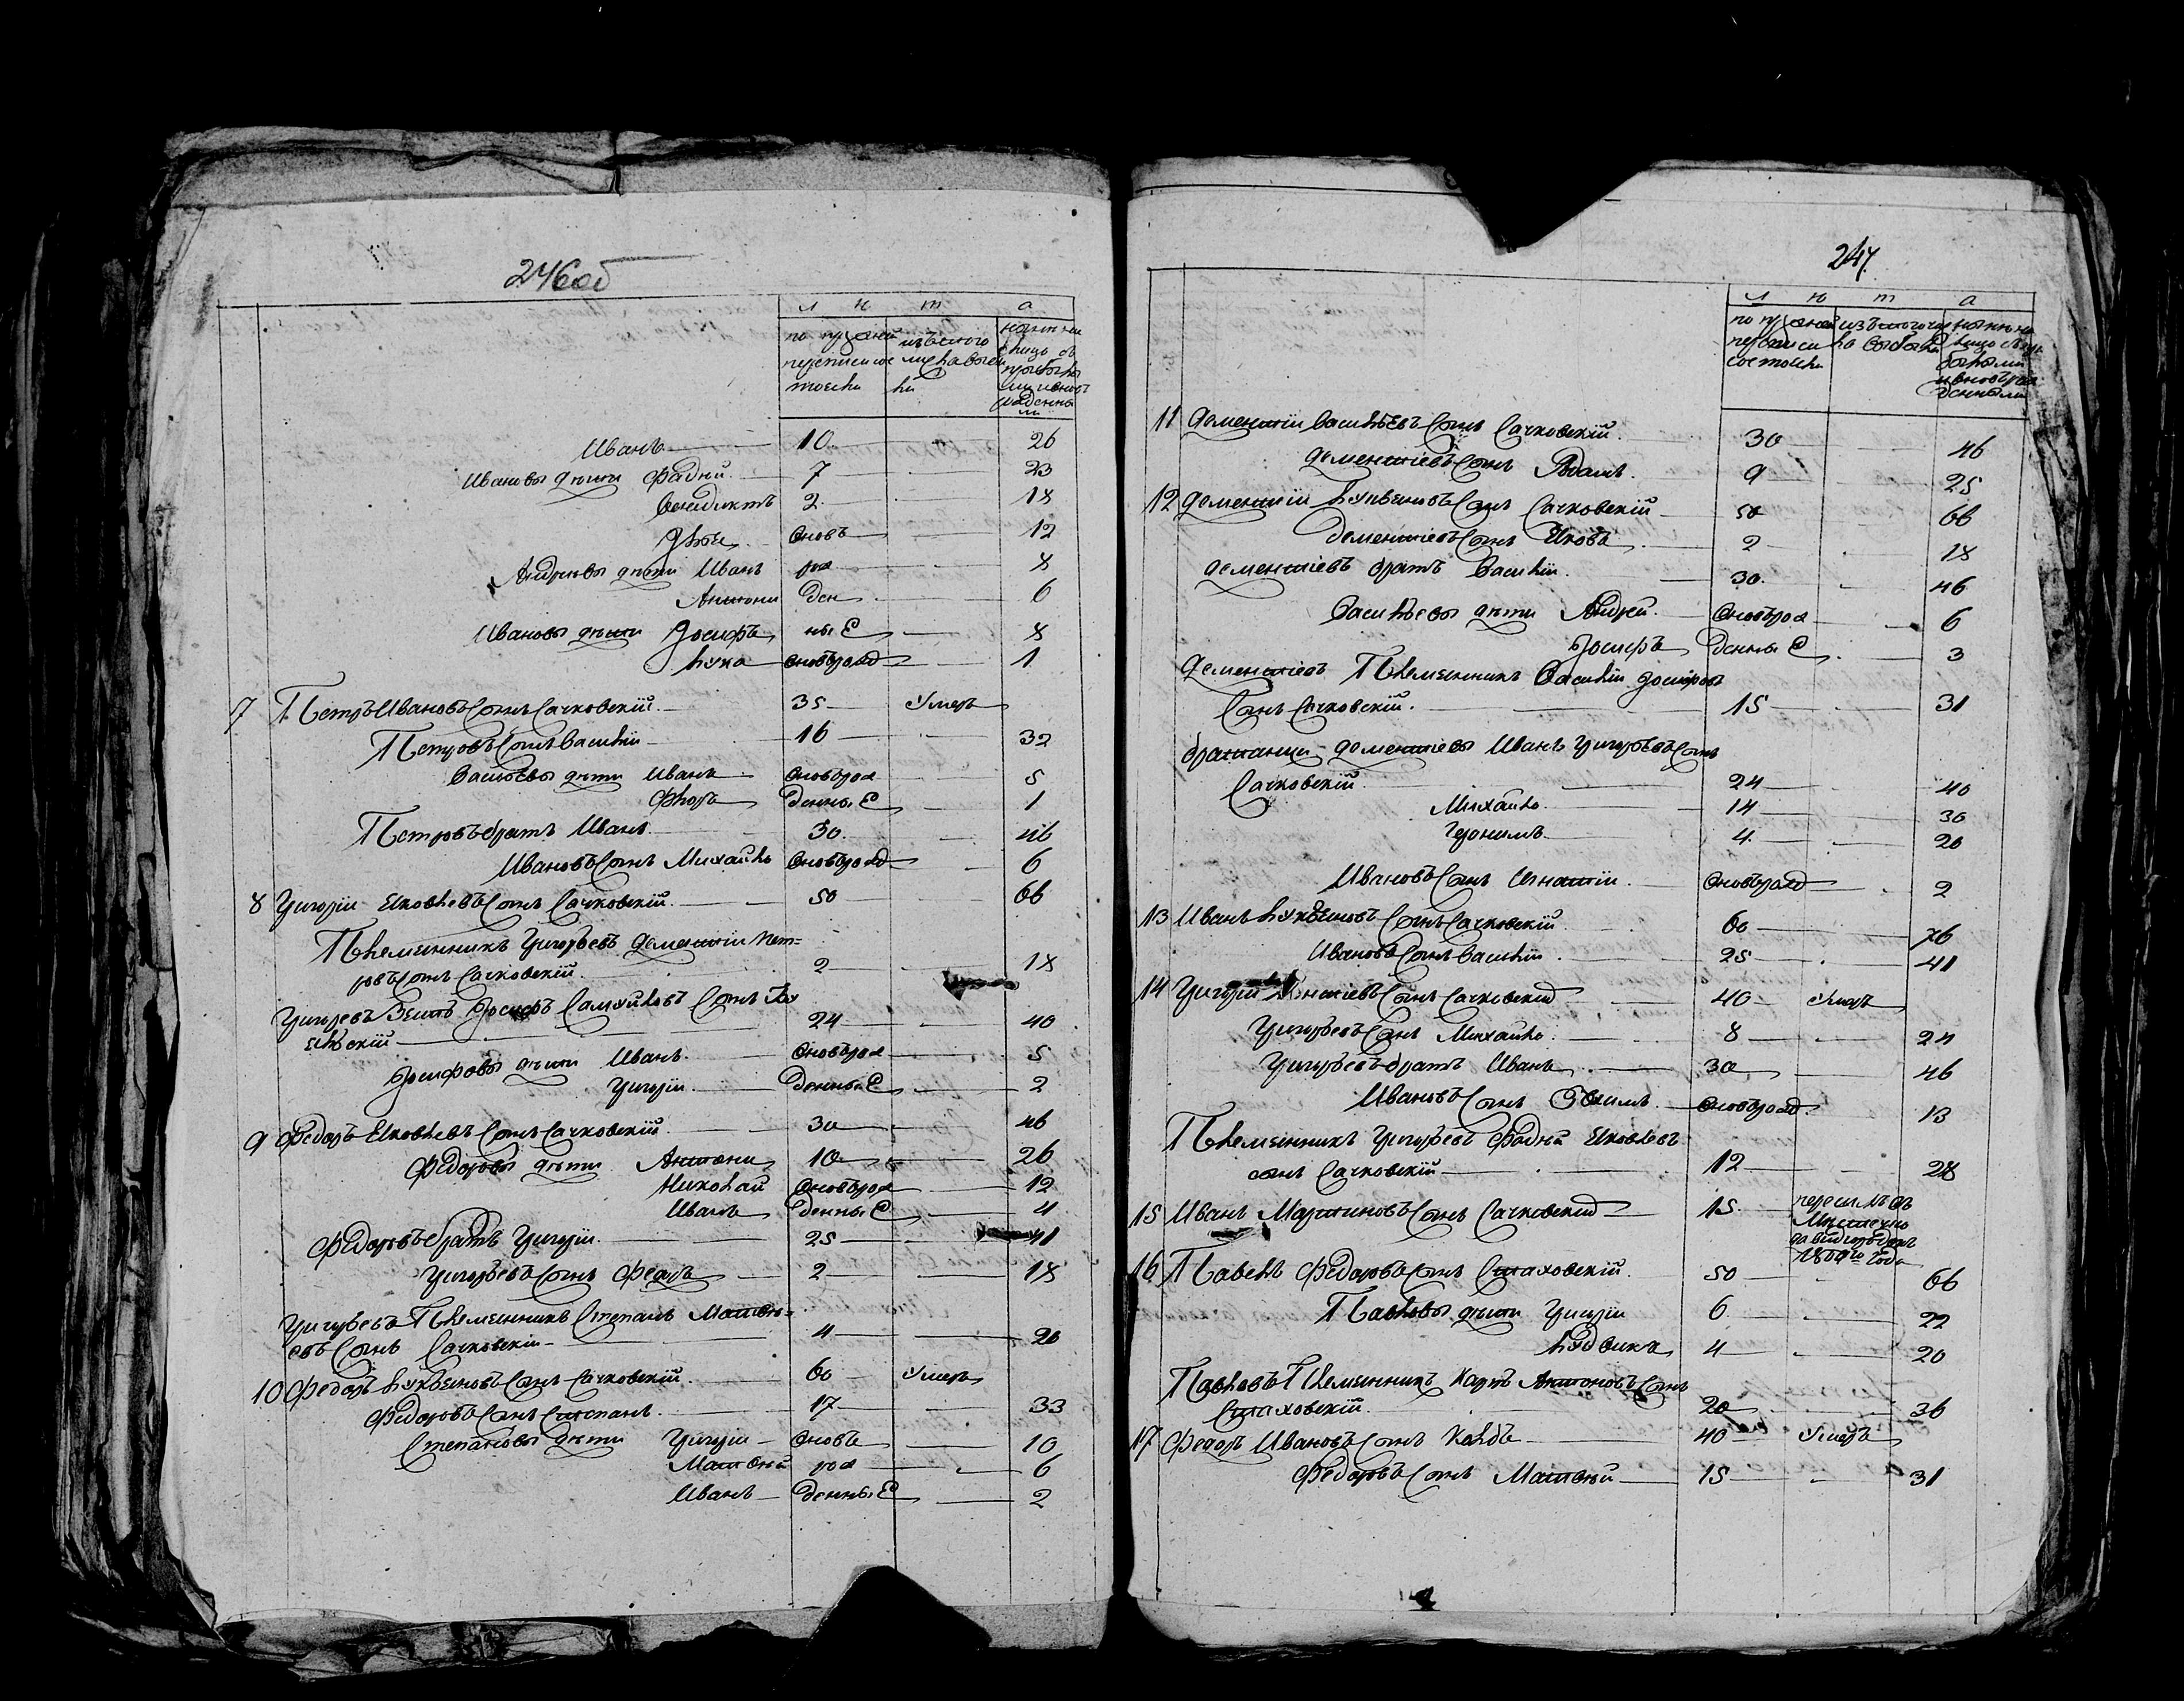 246об
л ѣ т а
по прежней переписи состояли
изъ того числа выбыли
нынѣ на лицо съ прибылыми и вновь рожденными
Иванъ 10 26
Ивановы дѣти Фадѣй 7 23
Бенедиктъ 2 18
вновь 12
Андреевы дѣти Иванъ рож 8
Антони ден 6
Ивановы дѣти Іосифъ ные 8
Лука вноврожд 1
7 Петръ Ивановъ Сынъ Сачковскій 35 Умеръ
Петровъ Сынъ Василій 16 32
Васильевы дѣти Иванъ вновьрож 5
Флоръ денные 1
Петровъ братъ Иванъ 30 46
Ивановъ Сынъ Михайло вновьрожд 6
8 Григорій Яковлевъ Сынъ Сачковскій 50 66
Племянникъ Григорьевъ Дементій Пет=
ровъ Сынъ Сачковскій 2 18
Григорьевъ Зять Іосифъ Самуйловъ Сынъ
24 40
Іосифовы дѣти Иванъ вновьрож 5
Григорій денные 2
9 Федоръ Яковлевъ Сынъ Сачковскій 30 46
Федоровы дѣти Антони 10 26
Николай вновьрож 12
Иванъ денные 4
Федоровъ братъ Григорій 25 41
Григорьевъ Сынъ Федоръ 2 18
Григорьевъ Племянникъ Степанъ Матвѣ=
евъ Сынъ Сачковскій 4 20
10 Федоръ Лукьяновъ Сынъ Сачковскій 60 Умеръ
Федоровъ Сынъ Степанъ 17 33
Степановы дѣти Григорій вновь 10
Матвѣй рож 6
Иванъ денные 2
247.
л ѣ т а
по прежней переписи состояли
изъ того числа выбыли
нынѣ на лицо съ прибылыми и вновь рожденными
11 Дементій Васильевъ Сынъ Сачковскій 30 46
Дементіевъ Сынъ Адамъ 9 25
12 Дементій Лукьяновъ Сынъ Сачковскій 50 66
Дементіевъ Сынъ Яковъ 2 18
Дементіевъ братъ Василій 30 46
Васильевы дѣти Андрей вновьрож 6
Іосифъ денные 3
Дементіевъ Племянникъ Василій Іосифовъ
Сынъ Сачковскій 15 31
братанцы Дементіевы Иванъ Григорьевъ Сынъ
Сачковскій 24 40
Михайло 14 30
Геронимъ 4 20
Ивановъ Сынъ Игнатій вновьрожд 2
13 Иванъ Лукьяновъ Сынъ Сачковскій 60 76
Ивановъ Сынъ Василій 25 41
14 Григорій Сынъ Сачковскій 40 Умеръ
Григорьевъ Сынъ Михайло 8 24
Григорьевъ братъ Иванъ 30 46
Ивановъ Сынъ вновьрожд 13
Племянникъ Григорьевъ Фадѣй Яковлевъ
сынъ Сачковскій 12 28
15 Иванъ Мартиновъ Сынъ Сачковскій 15 въ Мѣстечко Давидгородокъ 1800го года
16 Павелъ Федоровъ Сынъ Стаховскій 50 66
Павловы дѣти Григорій 6 22
Людвикъ 4 20
Павловъ Племянникъ Карпъ Антоновъ Сынъ
Стаховскій 20 36
17 Федоръ Ивановъ Сынъ Колбъ 40 Умеръ
Федоровъ Сынъ Матвѣй 15 31